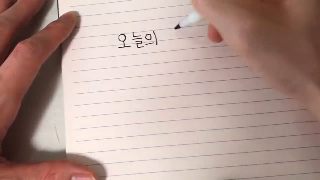 오늘의